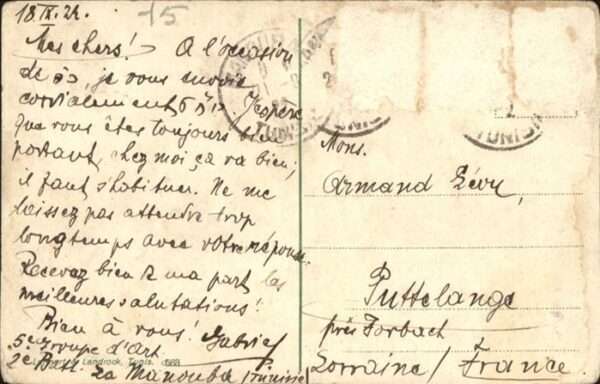 18 IX. 24.
15
Mes chers! A l'occasion
de je vous envoie
cordialement J'espère
que vous êtes toujours bien
portant, chez moi ça va bien;
il faut s'habituer. Ne me
laissez pas attendre trop
longtemps avec votre réponse.
Recevez bien de ma part les
meilleures salutations!
Bien à vous! Gabriel
5e Groupe d'Art.
2e Batt. La Manouba /Tunisie
Landrock, Tunis.
TUNISIE
Mons.
Armand Lévy,
Puttelange
près Forbach
Lorraine/ France